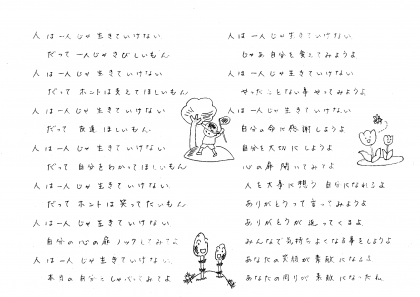 人は一人じゃ生きていけない
だって一人じゃさびしいもん
人は一人じゃ生きていけない
だって ホントは支えてほしいもん
人は一人じゃ生きていけない
だって 友達 ほしいもん
人は一人じゃ生きていけない
だって 自分をわかってほしいもん
人は一人じゃ生きていけない
だって ホントは笑ってたいもん
人は一人じゃ生きていけない
自分の心の扉 ノックしてみてよ
人は一人じゃ生きていけない
本当の自分としゃべってみてよ
人は一人じゃ生きていけない
じゃあ自分を変えてみようよ
人は一人じゃ生きていけない
やったことない事やってみようよ
人は一人じゃ生きていけない
自分の命に感謝しようよ
自分を大切にしようよ
心の扉 開いてみてよ
人を大事に想う 自分になれるよ
ありがとうって言ってみようよ
ありがとうが返ってくるよ
みんなで気持ちよくなる事をしようよ
あなたの笑顔が素敵になるよ
あなたの周りが素敵になったね